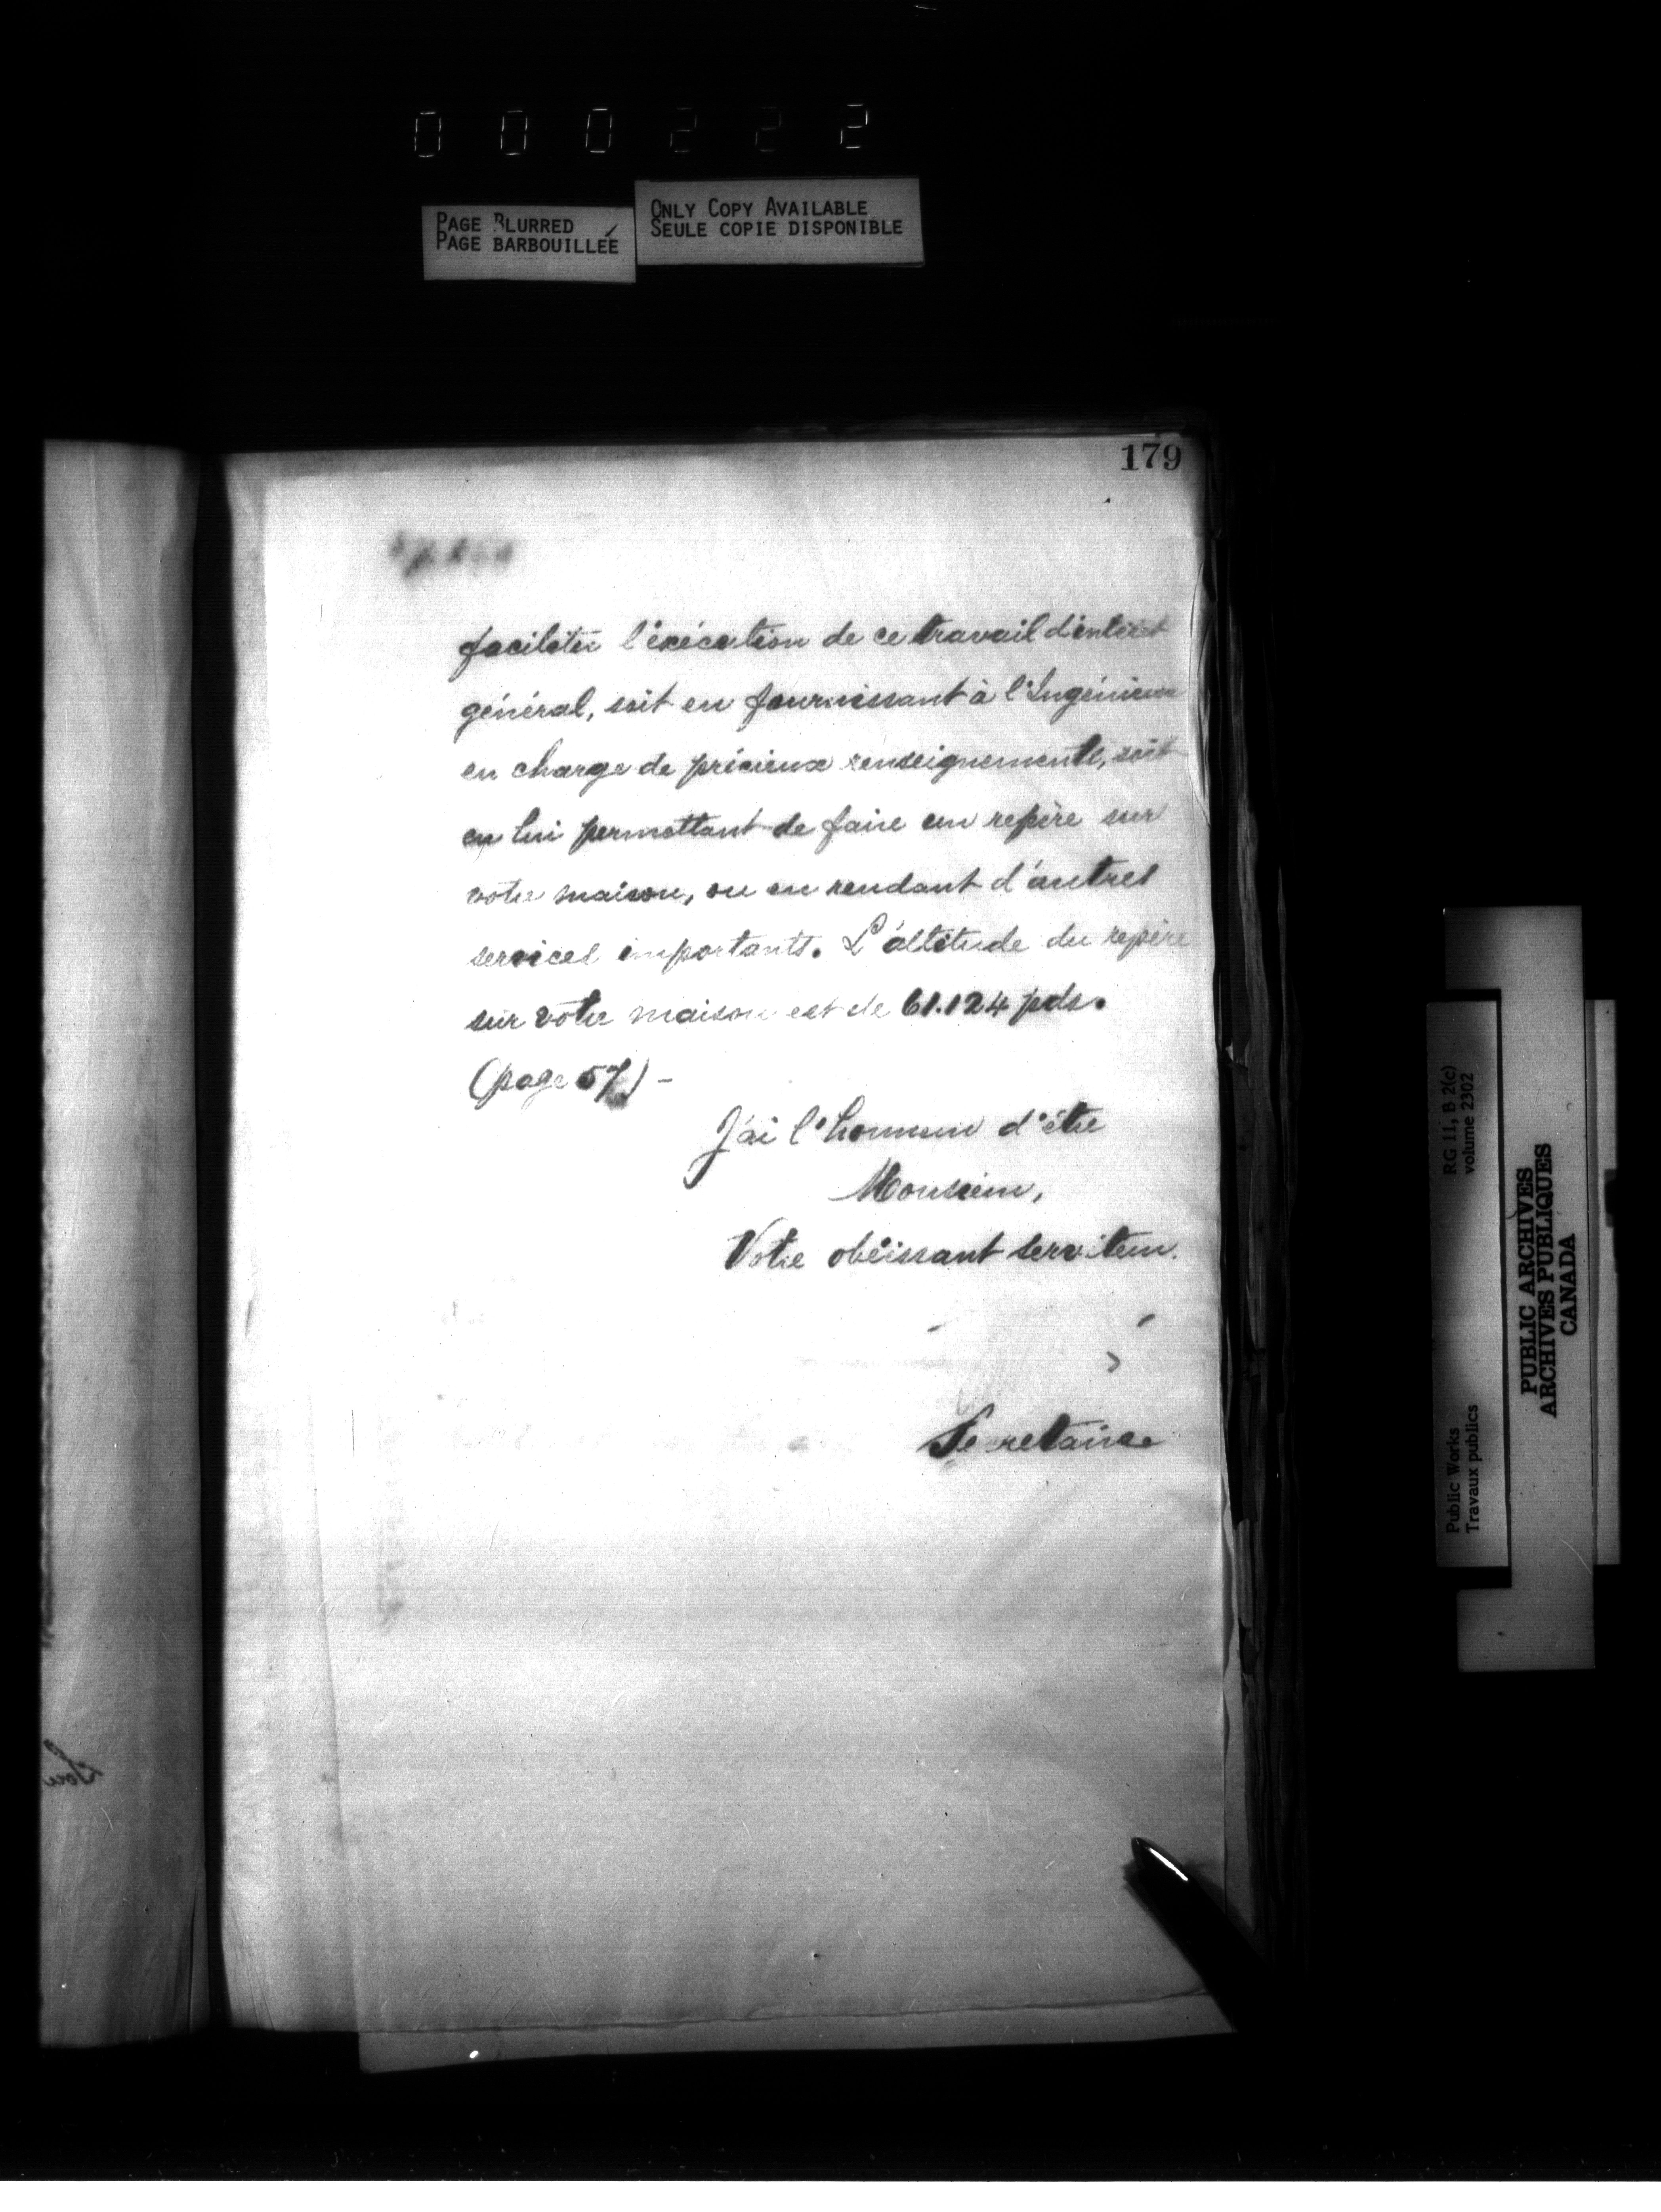 000222
PAGE BLURRED
PAGE BARBOUILLÉE
ONLY COPY AVAILABLE
SEULE COPIE DISPONIBLE
179
faciliter l'exécution de ce travail d'intérêt
général, soit en fournissant à l'Ingénieur
en charge de précieux renseignements, soit
en lui permettant de faire un repère sur
votre maison, ou en rendant d'autres
services importants. L'altitude du repère
sur votre maison est de 61.124 pds.
(page 57) -
J'ai l'honneur d'être
Monsieur,
Votre obéissant serviteur.
Secretaire
RG 11, B 2(c)
volume 2302
Public Works
Travaux publics
PUBLIC ARCHIVES
ARCHIVES PUBLIQUES
CANADA